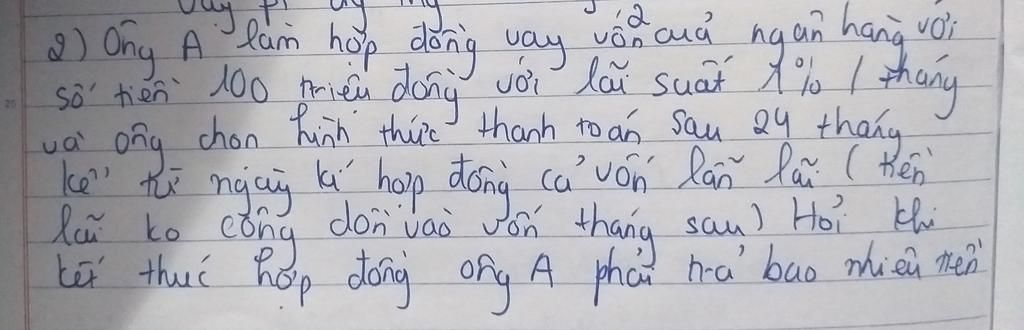 2) Ông A làm hợp đồng vay vốn của ngân hàng với
số tiền 100 triệu đồng với lãi suất 1% / tháng
và ông chọn hình thức thanh toán sau 24 tháng
kể từ ngày kí hợp đồng cả vốn lẫn lãi ( tiền
lãi ko cộng dồn vào vốn tháng sau) Hỏi khi
kết thúc hợp đồng ông A phải trả bao nhiêu tiền